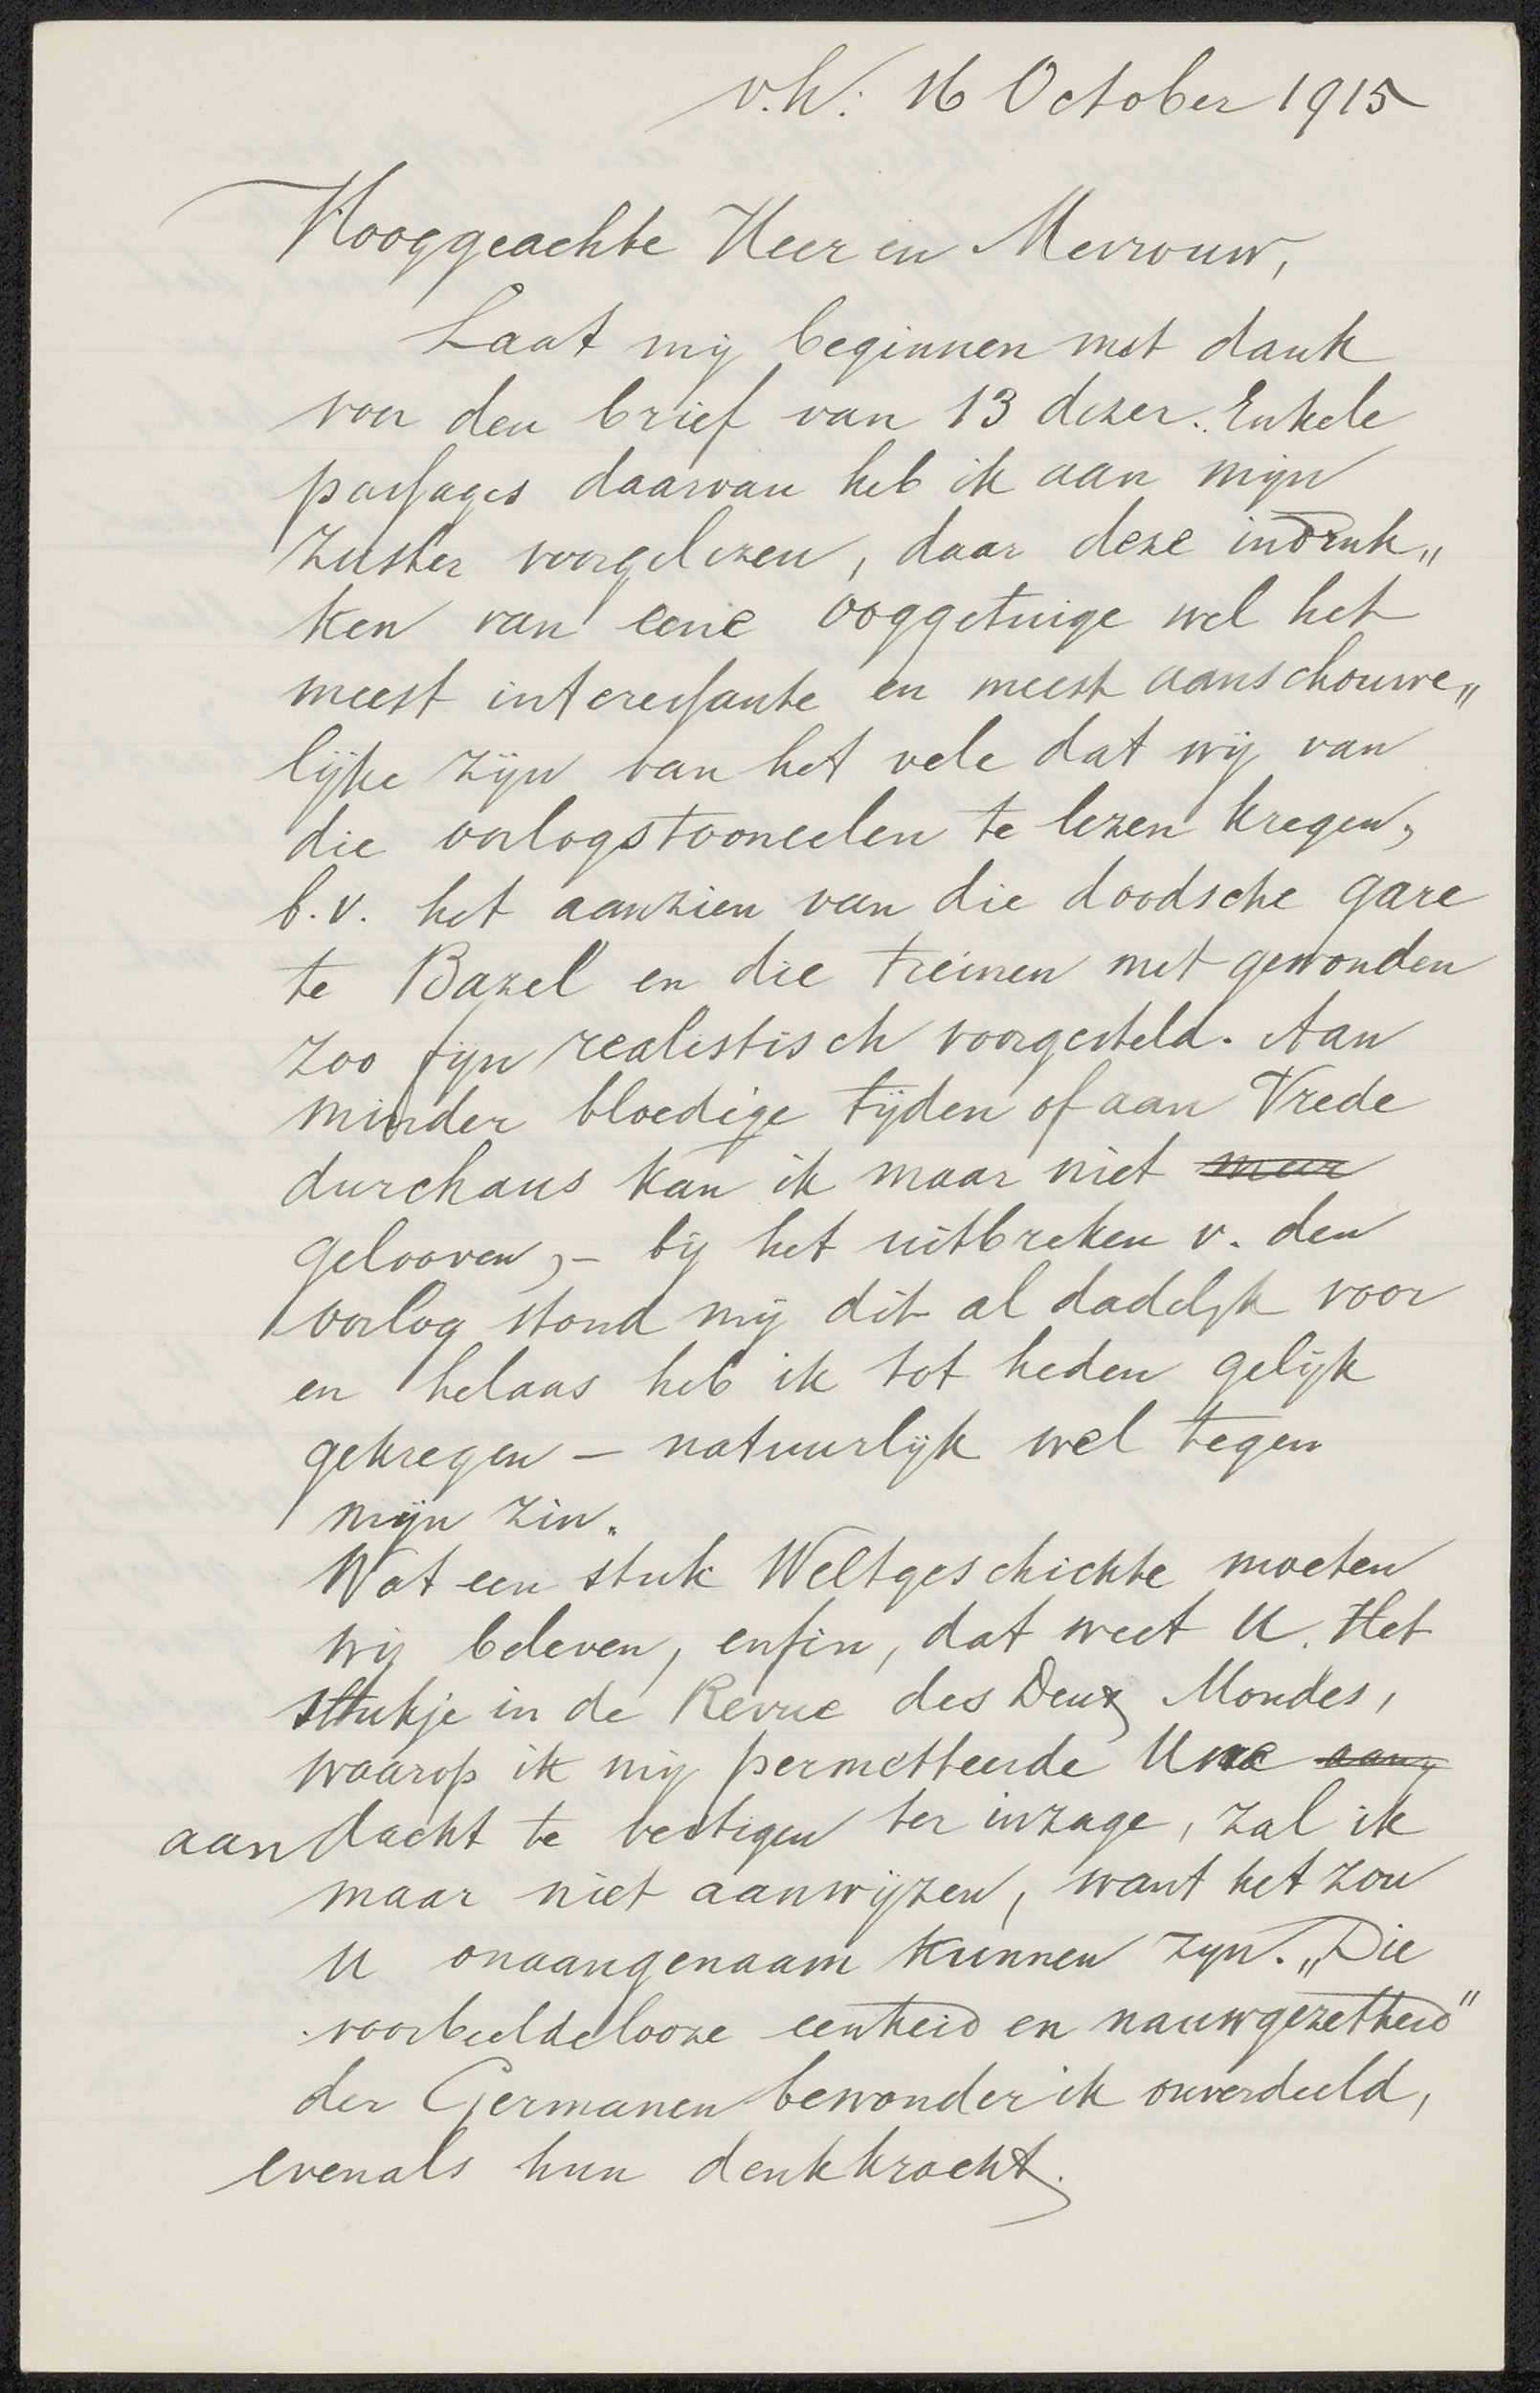 v.h. 16 October 1915
Hooggeachte Heer en Mevrouw,
Laat mij beginnen met dank
voor den brief van 13 dezer. Enkele
passages daarvan heb ik aan mijn
Zuster voorgelezen, daar deze indruk„
ken van eene ooggetuige wel het
meest interessante en meest aanschouwe„
lijke zijn van het vele dat wij van
die oorlogstooneelen te lezen kregen,
b.v. het aanzien van die doodsche gare
te Bazel en die treinen met gewonden
zoo fijn realistisch voorgesteld. Aan
minder bloedige tijden of aan Vrede
durchaus kan ik maar niet meer
gelooven, – bij het uitbreken v. den
oorlog stond mij dit al dadelijk voor
en helaas heb ik tot heden gelijk
gekregen – natuurlijk wel tegen
mijn zin.
Wat een stuk Weltgeschichte moeten
wij beleven, enfin, dat weet U. Het
stukje in de Revue des Deux Mondes,
waarop ik mij permetteerde Uwe
aandacht te vestigen ter inzage, zal ik
maar niet aanwijzen, want het zou
U onaangenaam kunnen zijn. „Die
voorbeeldelooze eenheid en nauwgezetheid"
der Germanen bewonder ik onverdeeld,
evenals hun denkkracht.